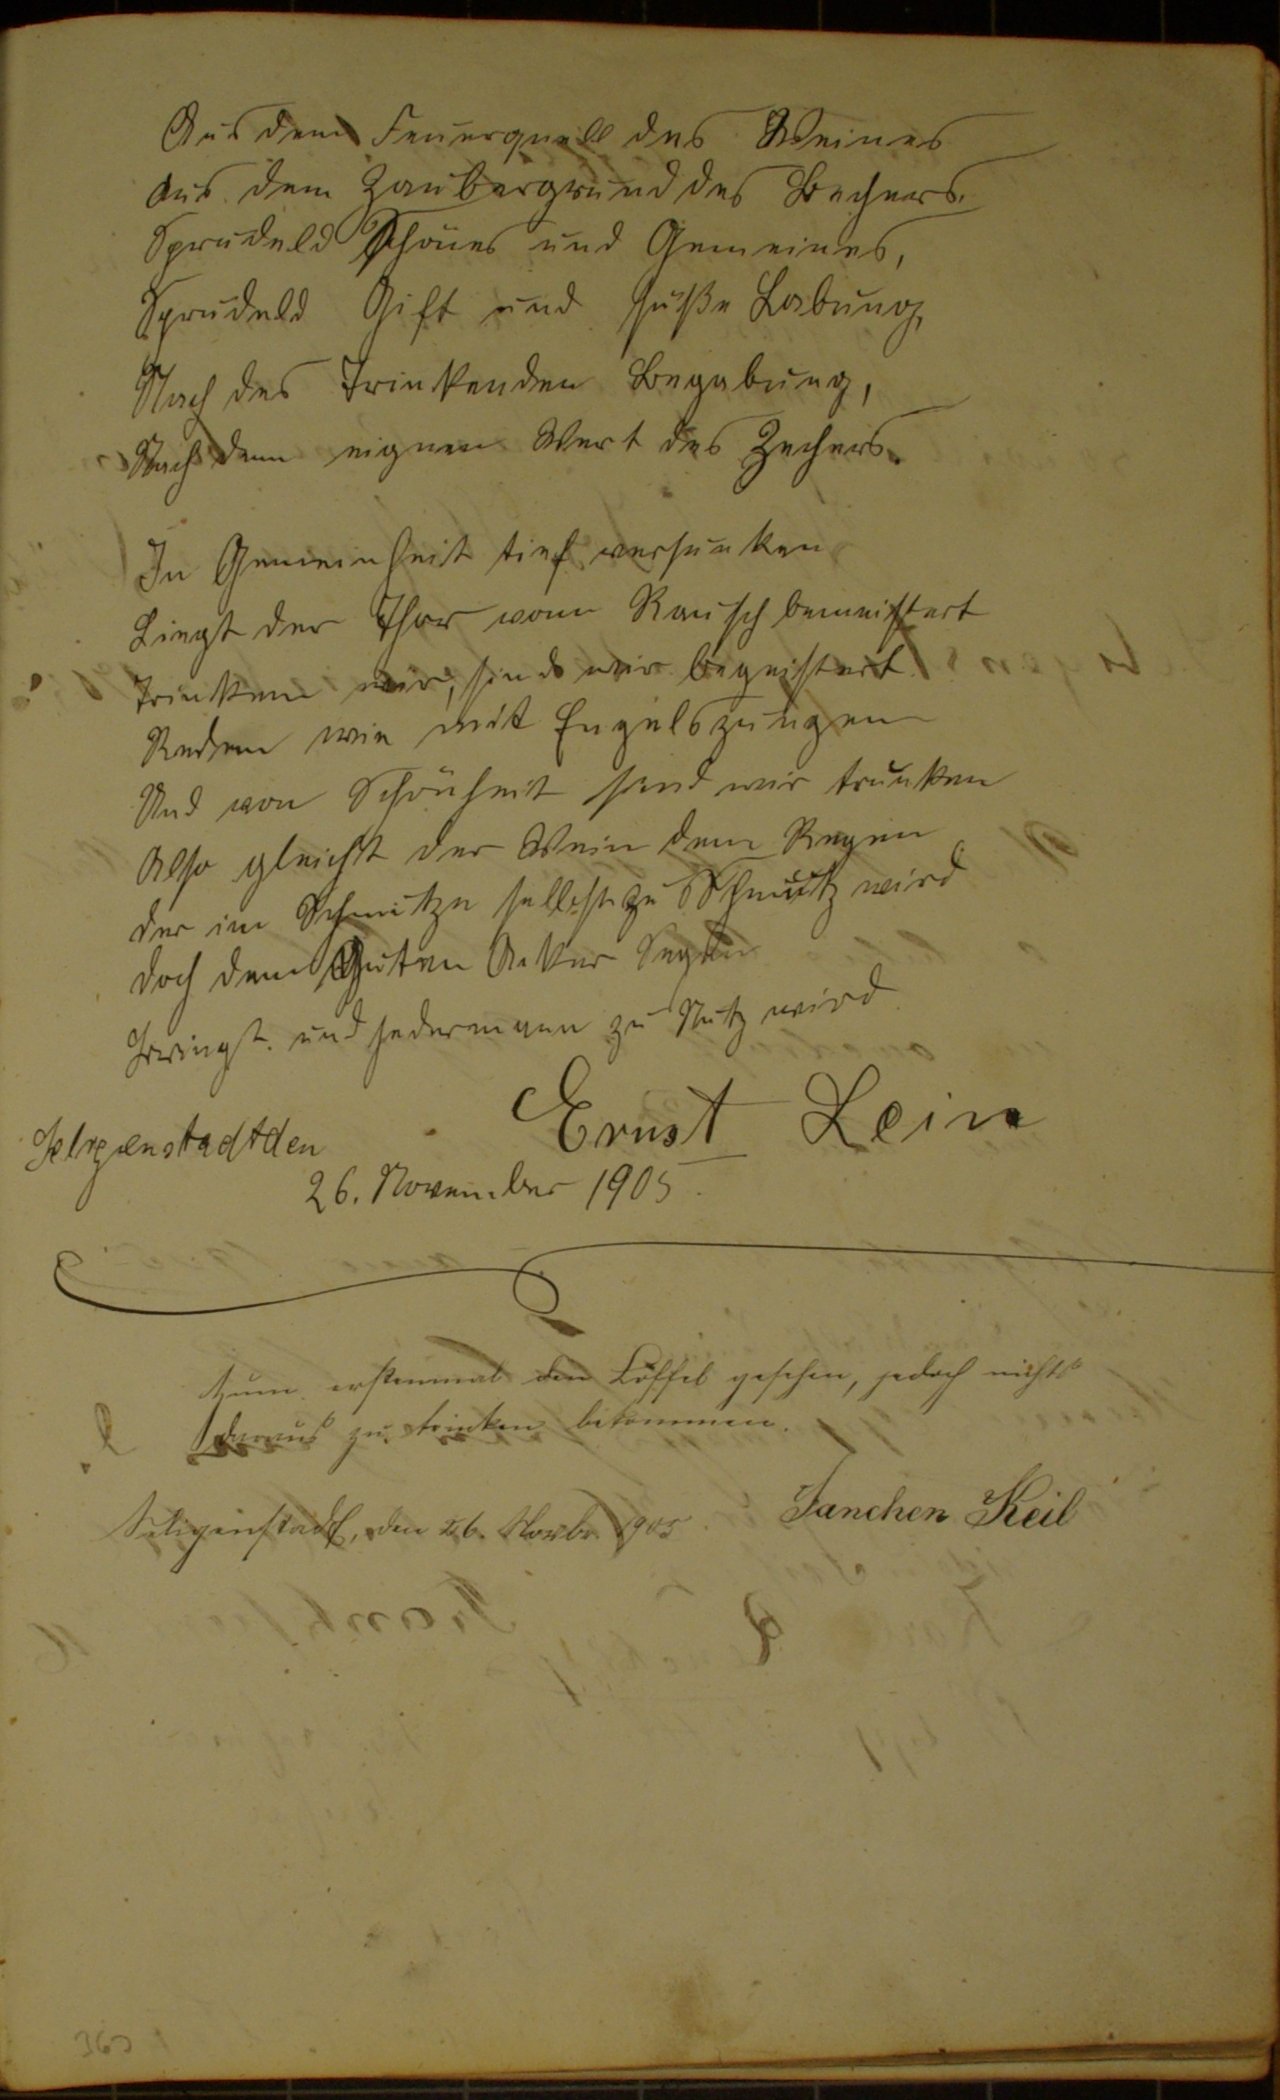 Aus dem Feuerquell des Weines
aus dem Zaubergrund des Bechers.
Sprudeld Schönes und Gemeines,
Sprudeld Gift und süße Labung,
Nach des Trinkenden Begabung,
Nach dem eignen Wert des Zechers.
In Gemeinheit tief versunken
Liegt der Thor vom Rausch bemeistert
Trinken wir, sind wir begeistert
Reden wie mit Engelszungen
Und von Schönheit sind wir trunken
Also gleicht der Wein dem Regen
der im Schmutze selbst zu Schmutz wird
doch dem Guten Acker Segen
bringt und jedermann zu Nutz wird
Ernst Lein
Selgenstadt den
26. November 1905.
Zum erstenmal den Löffel gesehen, jedoch nichts
daraus zu trinken bekommen.
Janchen Keil
Seligenstadt, den 26. Novbr. 1905.
363